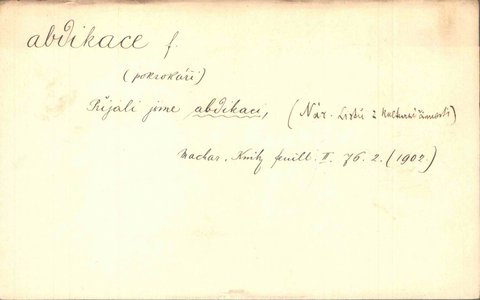 abdikace f.
(pokrokáři)
Přijali jsme abdikaci, (Nár. Listů z kulturní činnosti)
Machar, Knihy feuill. II. 76. 2. (1902.)